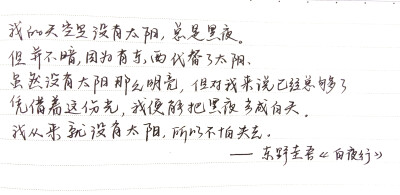 我的天空里没有太阳，总是黑夜。
但并不暗，因为有东西代替了太阳、
虽然没有太阳那么明亮，但对我来说已经足够了
凭借着这份光，我便能把黑夜当成白天。
我从来就没有太阳，所以不怕失去。
—— 东野圭吾《白夜行》